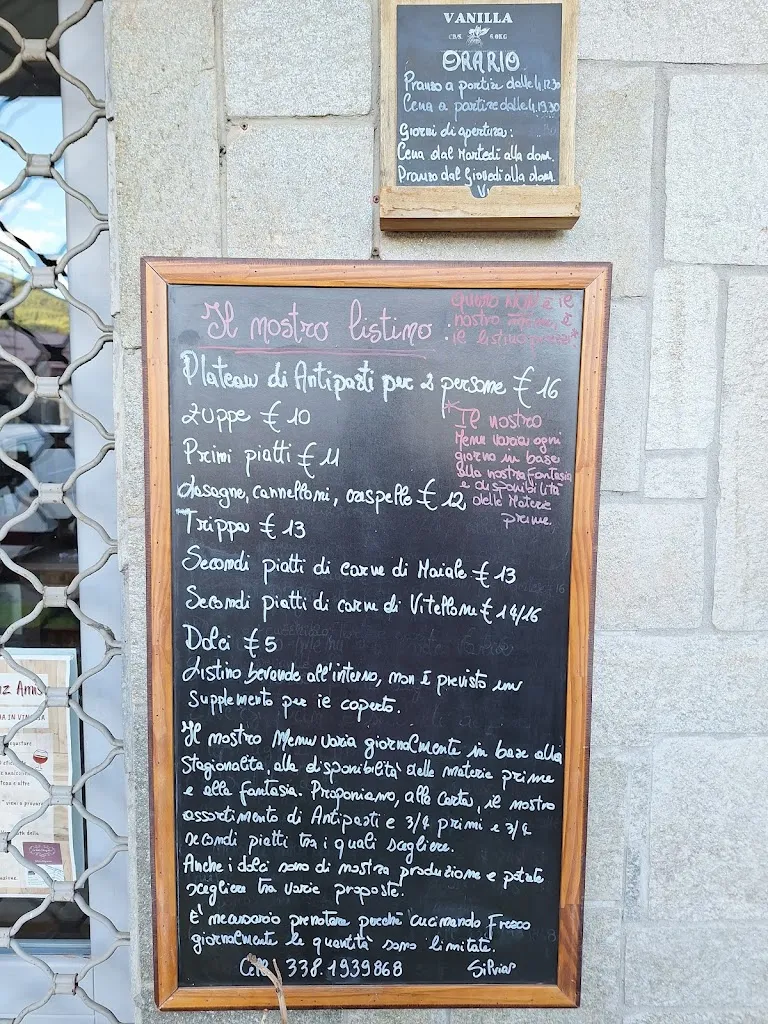 VANILLA
ORARIO
Pranzo a partire dalle h.12.30
Cena a partire dalle h.19.30
Giorni di apertura:
Cena dal Martedì alla dom.
Pranzo dal Giovedì alla dom.
Il nostro listino.
questo non è il
nostro menù, è
il listino prezzi*
Plateau di Antipasti per 2 persone € 16
Zuppe € 10
Primi piatti € 11
Lasagne, cannelloni, crespelle € 12
Trippa € 13
* Il nostro
Menu varia ogni
giorno in base
alla nostra fantasia
e disponibilità
delle Materie
prime
Secondi piatti di carne di Maiale € 13
Secondi piatti di carne di Vitellone € 14/16
Dolci € 5
Listino bevande all'interno, non è previsto un
supplemento per il coperto.
Il nostro Menu varia giornalmente in base alla
Stagionalità, alla disponibilità delle materie prime
e alla fantasia. Proponiamo, alla carta, il nostro
assortimento di Antipasti e 3/4 primi e 3/4
secondi piatti tra i quali scegliere.
Anche i dolci sono di nostra produzione e potete
scegliere tra varie proposte.
E' necessario prenotare perchè cucinando Fresco
giornalmente le quantità sono limitate.
Cell. 338.1939868 Silvia